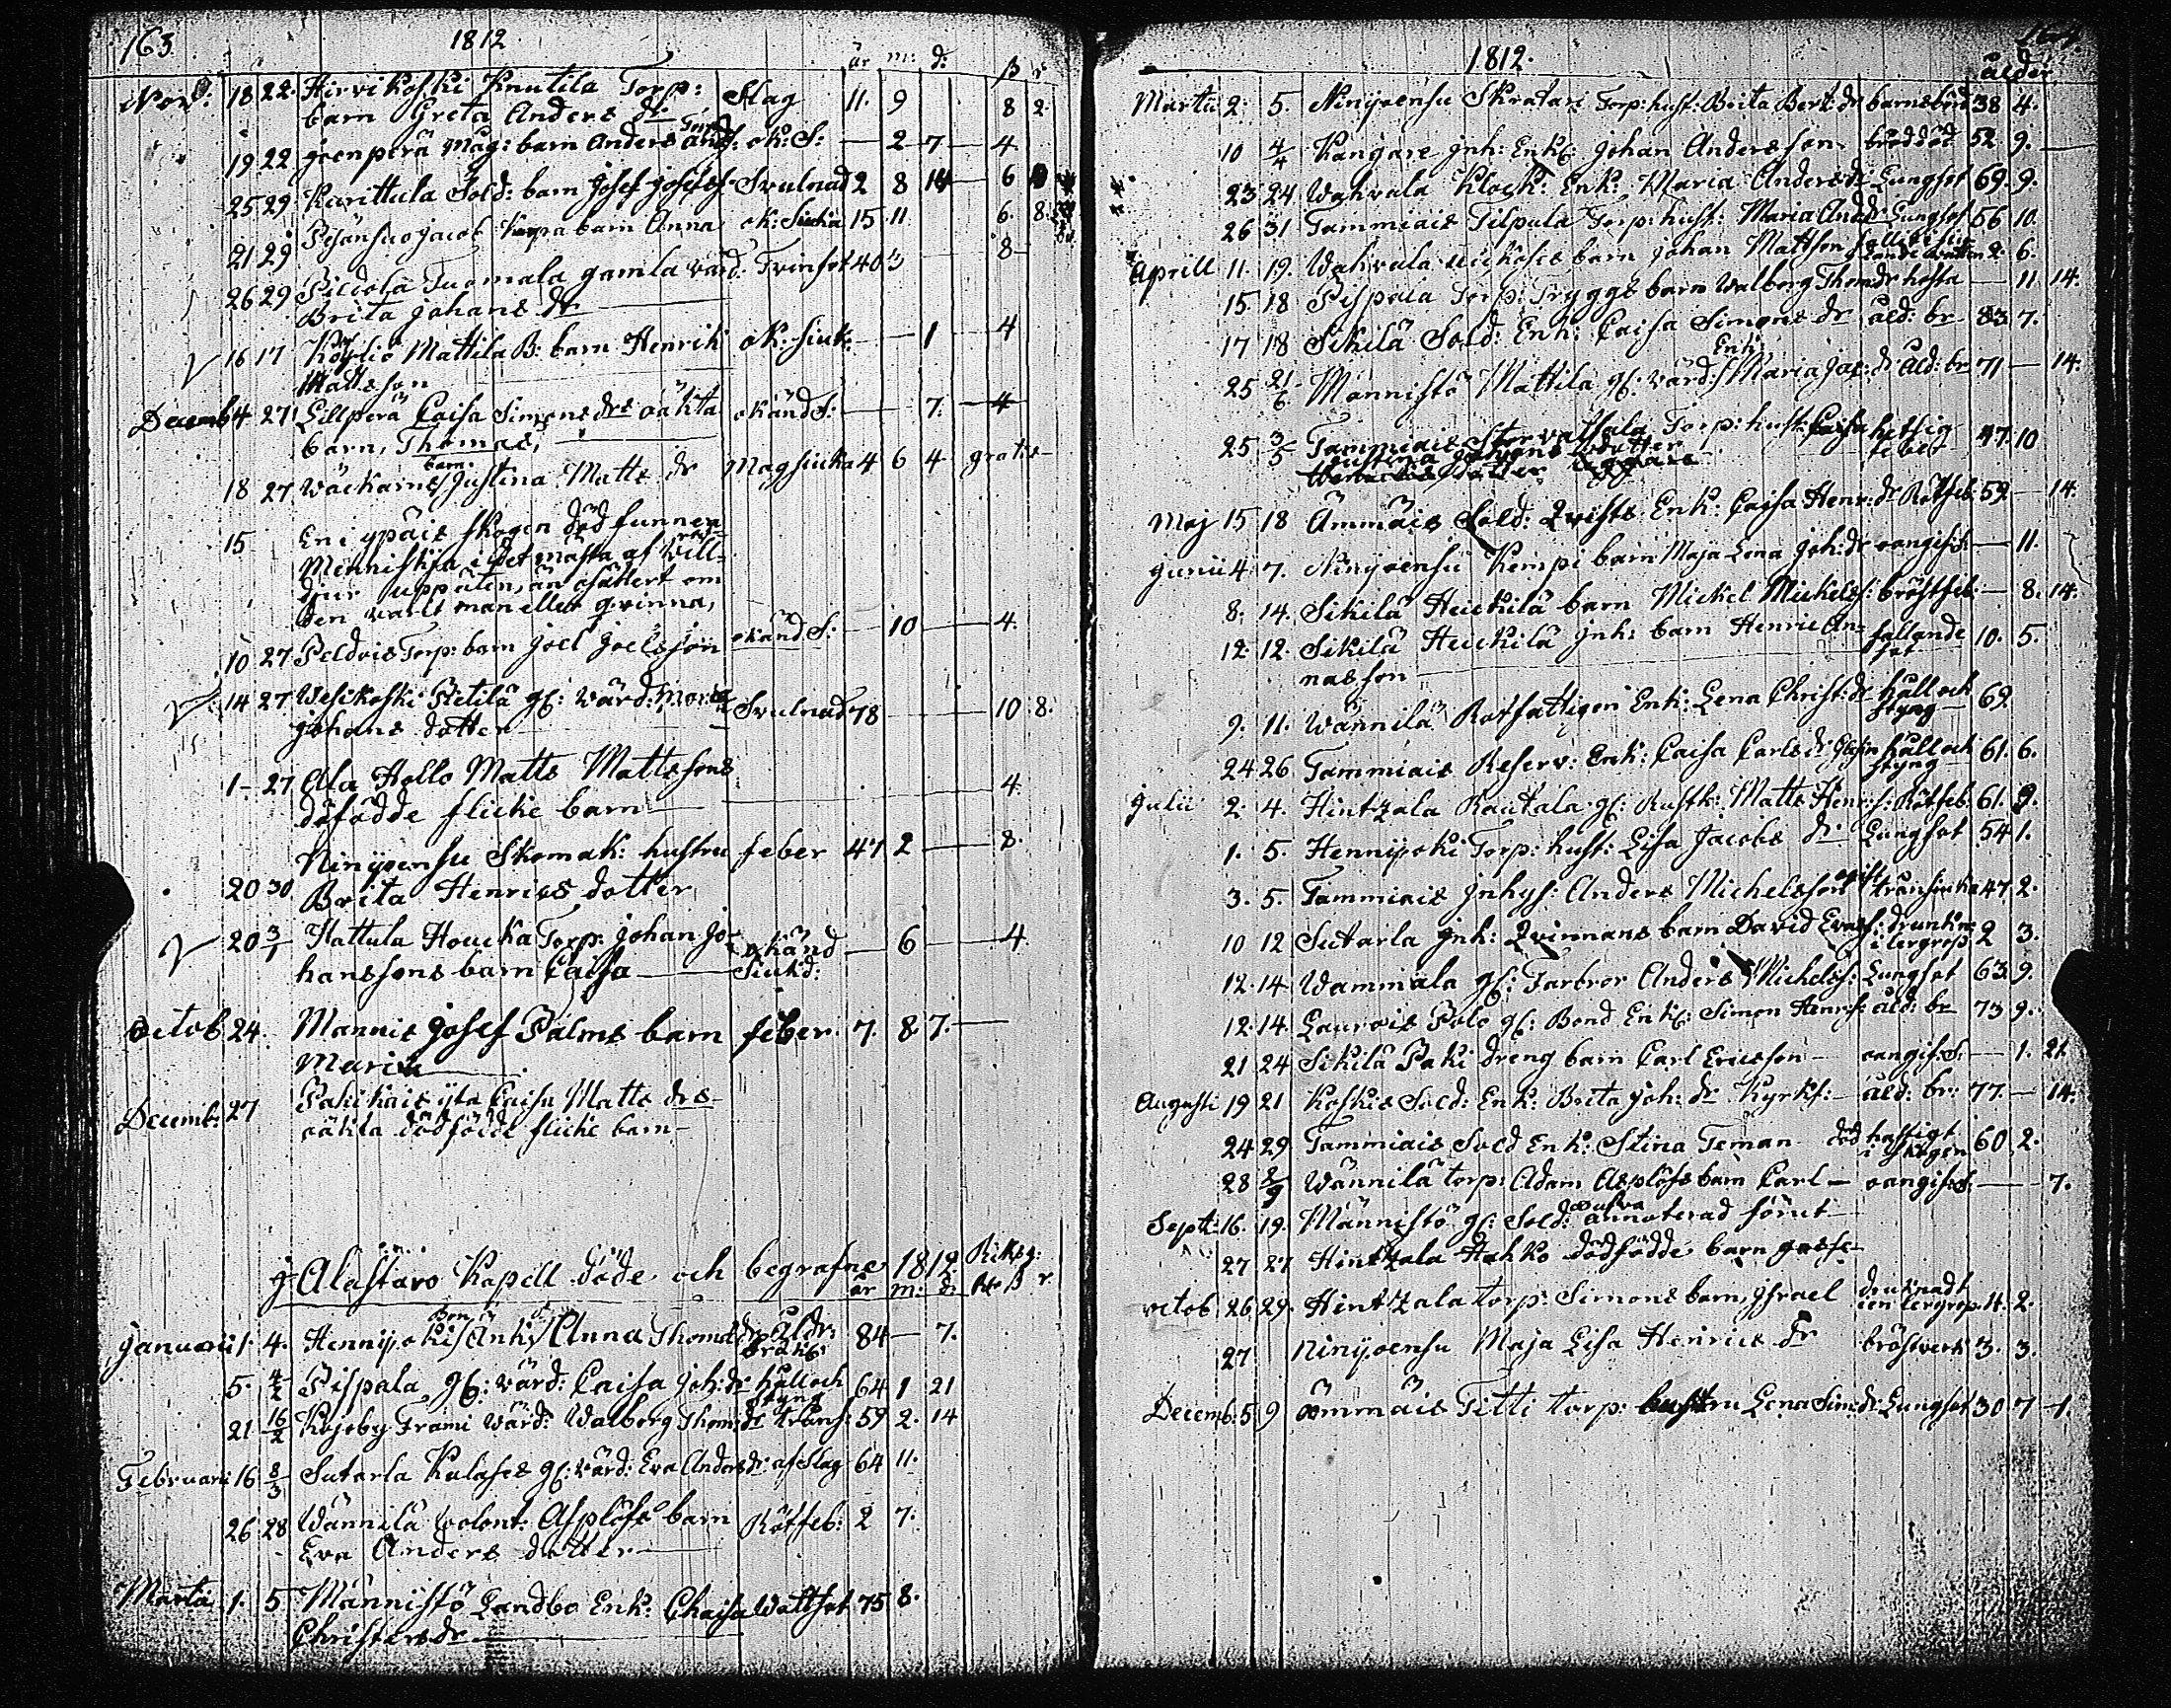 163
1812
år m: d: ß r
Nov: 18 22 Hirvikoski Knutila Torp: Slag 11. 9 8 2
barn Greta Anders dr
19 22 barn Anders ok: S: — 2 7 — 4
25 29 Karittula Sold: barn Josef Josefs: Svulnad 2 8 14 6
21 29 Jacob barn Anna ok: Siuka 15 11 6. 8.
26 29 Tuomala gamla värd: Tvinsot 40 3 8
Brita Johans dr
16 17 Köyliö Mattila B: barn Henrik ok: Siuk: — 1 4
Mattsson
Decemb 4 27 Lillperä Caisa Simons drs oäkta okänd S: — 7. 4
barn, Thomas,
barn
18 27 Wäckarnes Justina Matts dr Magsiuka 4 6 4 gratis
15 En i ypäis skogen död funnen
Menniskja i det mästa af
djur uppäten, än osäkert om
den varit man eller qvinna,
10 27 Peldois Torp: barn Joel Joelsson okänd S: — 10 — 4.
14 27 Wesikoski Pietilä gl: Värd: Maria Svulnad 78 10 8.
Johans dotter
1 27 Ella Hollo Matts Mattssons 4.
döfödde flicke barn
Ninijoensu Skomak: hustru feber 47 2 — 8.
20 30 Brita Henrics dotter
20 3/1 Hattula Houcka Torp: Johan Jo- okänd — 6 — 4
hanssons barn Caisa Siukd:
Octob 24. Mannis Josef Palms barn feber 7. 8 7.
Maria
Decemb: 27 Caisa Matts drs
oäkta dödfödde flicke barn
i Alastaro Kapell döde och begrafne 1812. Riksg:
år m: d: ß r
Januari 1. 4. Hennijoki Enk: Anna Thomæ dr Åldr: 84 — 7.
bräckl:
5. 4/2 Pispala, gl: värd: Caisa Joh: dr håll och 64 1 21
styng
21 16/2 Kojoby Frami Värd: Walborg Thom: dr Trans: 59 2. 14
Februari 16 8/3 Sutarla Kulases gl: värd: Eva Anders dr af Slag 64 11.
26 28 Wännilä volont: Asplöfs barn Rötfeb: 2 7.
Eva Anders dotter
Martii 1. 5 Männistö Landbo Enk: Chaisa Wattsot 75 8.
Christers dr
164
1812.
ålder
Martii 2. 5. Ninijoensu Skratari Torp: hust: Brita Bert: dr barnsbörd 38 4.
10 4/4 Kangare Inh: Enkl: Johan Andersson bråddöd 52 9.
23 24 Wahvala Klock: Enk: Maria Anders dr Lungsot 69. 9.
26 31 Tammiais Tilpala Torp: hust: Maria And: dr Lungsot 56 10.
Aprill 11. 19. Wahvala barn Johan Mattson 2. 6.
15. 18 Pispala Torp: Tryggs barn Walborg Thom: dr hosta — 11 14.
17 18 Sikilä Sold: Enk: Caisa Simons dr åld: br 83 7.
Enk:
25 21/6 Männistö Mattila gl: värd: Maria Jac: dr åld: br 71 — 14.
25 3/5 Tammiais Torp: hust: hetsig 47. 10
feber
Maj 15 18 Ämmäis Sold: Qvists Enk: Caisa Henr: dr Rötfeb: 59 — 14.
Junii 4 7. Ninijoensu Kempi barn Maja Lena Joh: dr oangif: S: — 11.
8. 14. Sikilä Heickilä barn Mickel Mickels: bröstfeb: — 8. 14.
12. 12. Sikilä Heickilä Inh: barn Henric An- fallande 10. 5.
nasson sot
9. 11. Wännilä Rotfattigen Enk: Lena Christ: dr håll och 69
styng
24 26 Tammiais Reserv: Enk: Caisa Carls dr håll och 61. 6.
styng
Julii 2. 4. Hintzala Rautala gl: Rustk: Matts Henr: s: Rötfeb: 61. 9.
1. 5. Hennijoki Torp: hust: Lisa Jacobs dr Lungsot 54 1.
3. 5. Tammiais Inhys: Anders Michelsson transiuka 47. 2.
10 12 Sutarla Inh: Qvinnans barn David drunkn: 2 3.
i lergrop
12. 14. Wammala gl: Farbror Anders Michels: Lungsot 63. 9.
12. 14. Laurois Polo gl: Bond Enkl: Simon Henr: s: åld: br 73 9.
21 24 Sikilä Paki dreng barn Carl Ericsson oangif: S: — 1. 21
Augusti 19 21 Koskis Sold: Enk: Brita Joh: dr Kyrkf: åld: br: 77. — 14.
24 29. Tammiais Sold Enk: Stina Teman död hastigt 60 2.
i skogen
28 2/9 Wännilä torp: Adam Asplöfs barn Carl — oangif: S: — 7.
Sept: 16. 19. Männistö gl: Sold: annoterad förut
27 27 Hintzala Hahko dödfödde barn gosse
octob: 26. 29. Hintzala torp: Simons barn, Israel druknadt 4. 2.
i en lergrop
27 Ninijoensu Maja Lisa Henrics dr bröstverk 3. 3.
Decemb: 5 9 Ämmäis Titti torp: hustru Lena Sim: dr Lungsot 30 7 1.